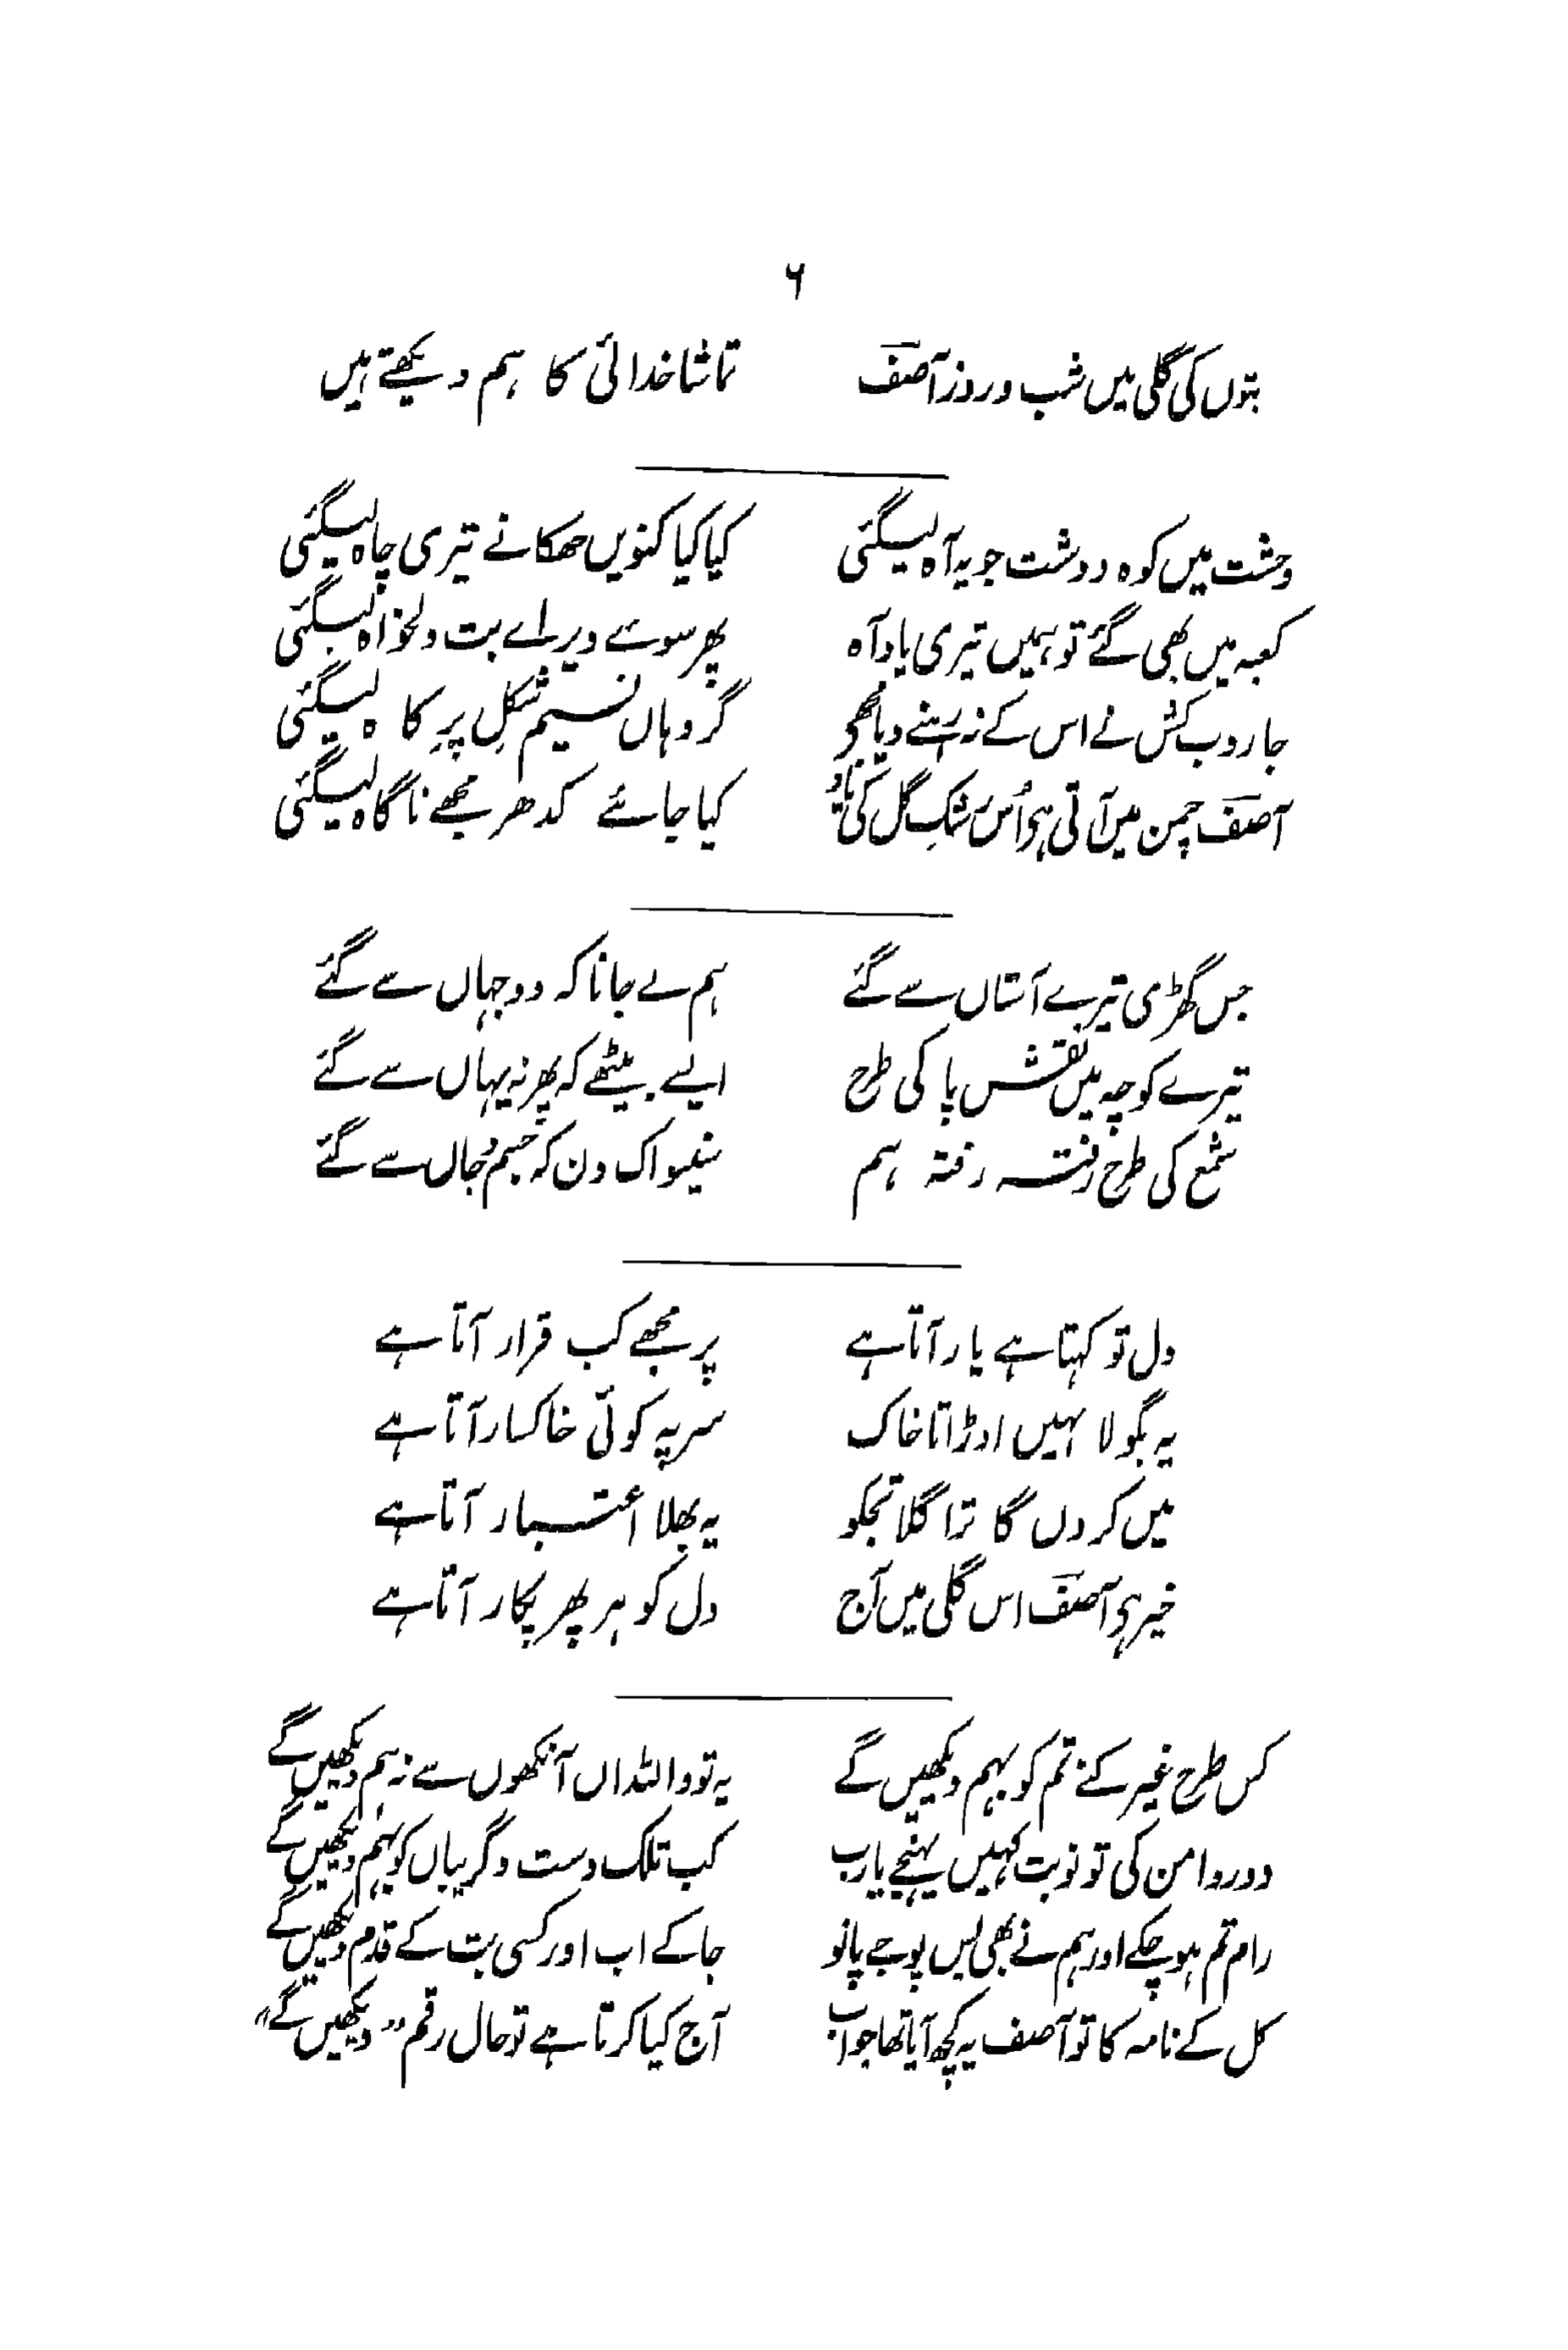 ۶
بتوں کی گلی میں شب و روز آصفؔ تماشا خدائی کا ہم دیکھتے ہیں
وحشت میں کوہ و دشت جو یہ آہ لیگئی کیا کیا کنویں جھکانے تیری چاہ لیگئی
کعبہ میں بھی گئے تو ہمیں تیری یاد آہ پھر سوئے دیر اے بت دلخواہ لیگئی
جاروب کش نے اس کے نہ رہنے دیا مجھے گر وہاں نسیم شکلِ پرِ کاہ لیگئی
آصفؔ چمن میں آتی ہی اُس رشکِ گل کی یاد کیا جائے کدھر مجھے ناگاہ لیگئی
جس گھڑی تیرے آستاں سے گئے ہم نے جانا کہ دو جہاں سے گئے
تیرے کوچہ میں نقش پا کی طرح ایسے بیٹھے کہ پھر نہ یہاں سے گئے
شمع کی طرح رفتہ رفتہ ہم سنیو اک دن کہ جسم و جاں سے گئے
دل تو کہتا ہے یار آتا ہے پر مجھے کب قرار آتا ہے
یہ بگولا نہیں اوڑاتا خاک سر پہ کوئی خاکسار آتا ہے
میں کروں گا ترا گلا تجکو یہ بھلا اعتبار آتا ہے
خیر ہی آصفؔ اس گلی میں آج دل کو ہر پھر پکار آتا ہے
کس طرح غیر کے تم کو بہم دیکھیں گے یہ تو واللہ اں آنکھوں سے نہ ہم دیکھیں گے
دور دامن کی تو نوبت کہیں پہنچے یارب کب تلک دست و گریباں کو بہم دیکھیں گے
رام تم ہو چکے اور ہم نے بھی بس پوجے پانو جا کے اب اور کسی بت کے قدم دیکھیں گے
کل کے نامہ کا تو آصف یہ کچھ آیا تھا جواب آج کیا کرتا ہے تو حال رقم "دیکھیں گے"